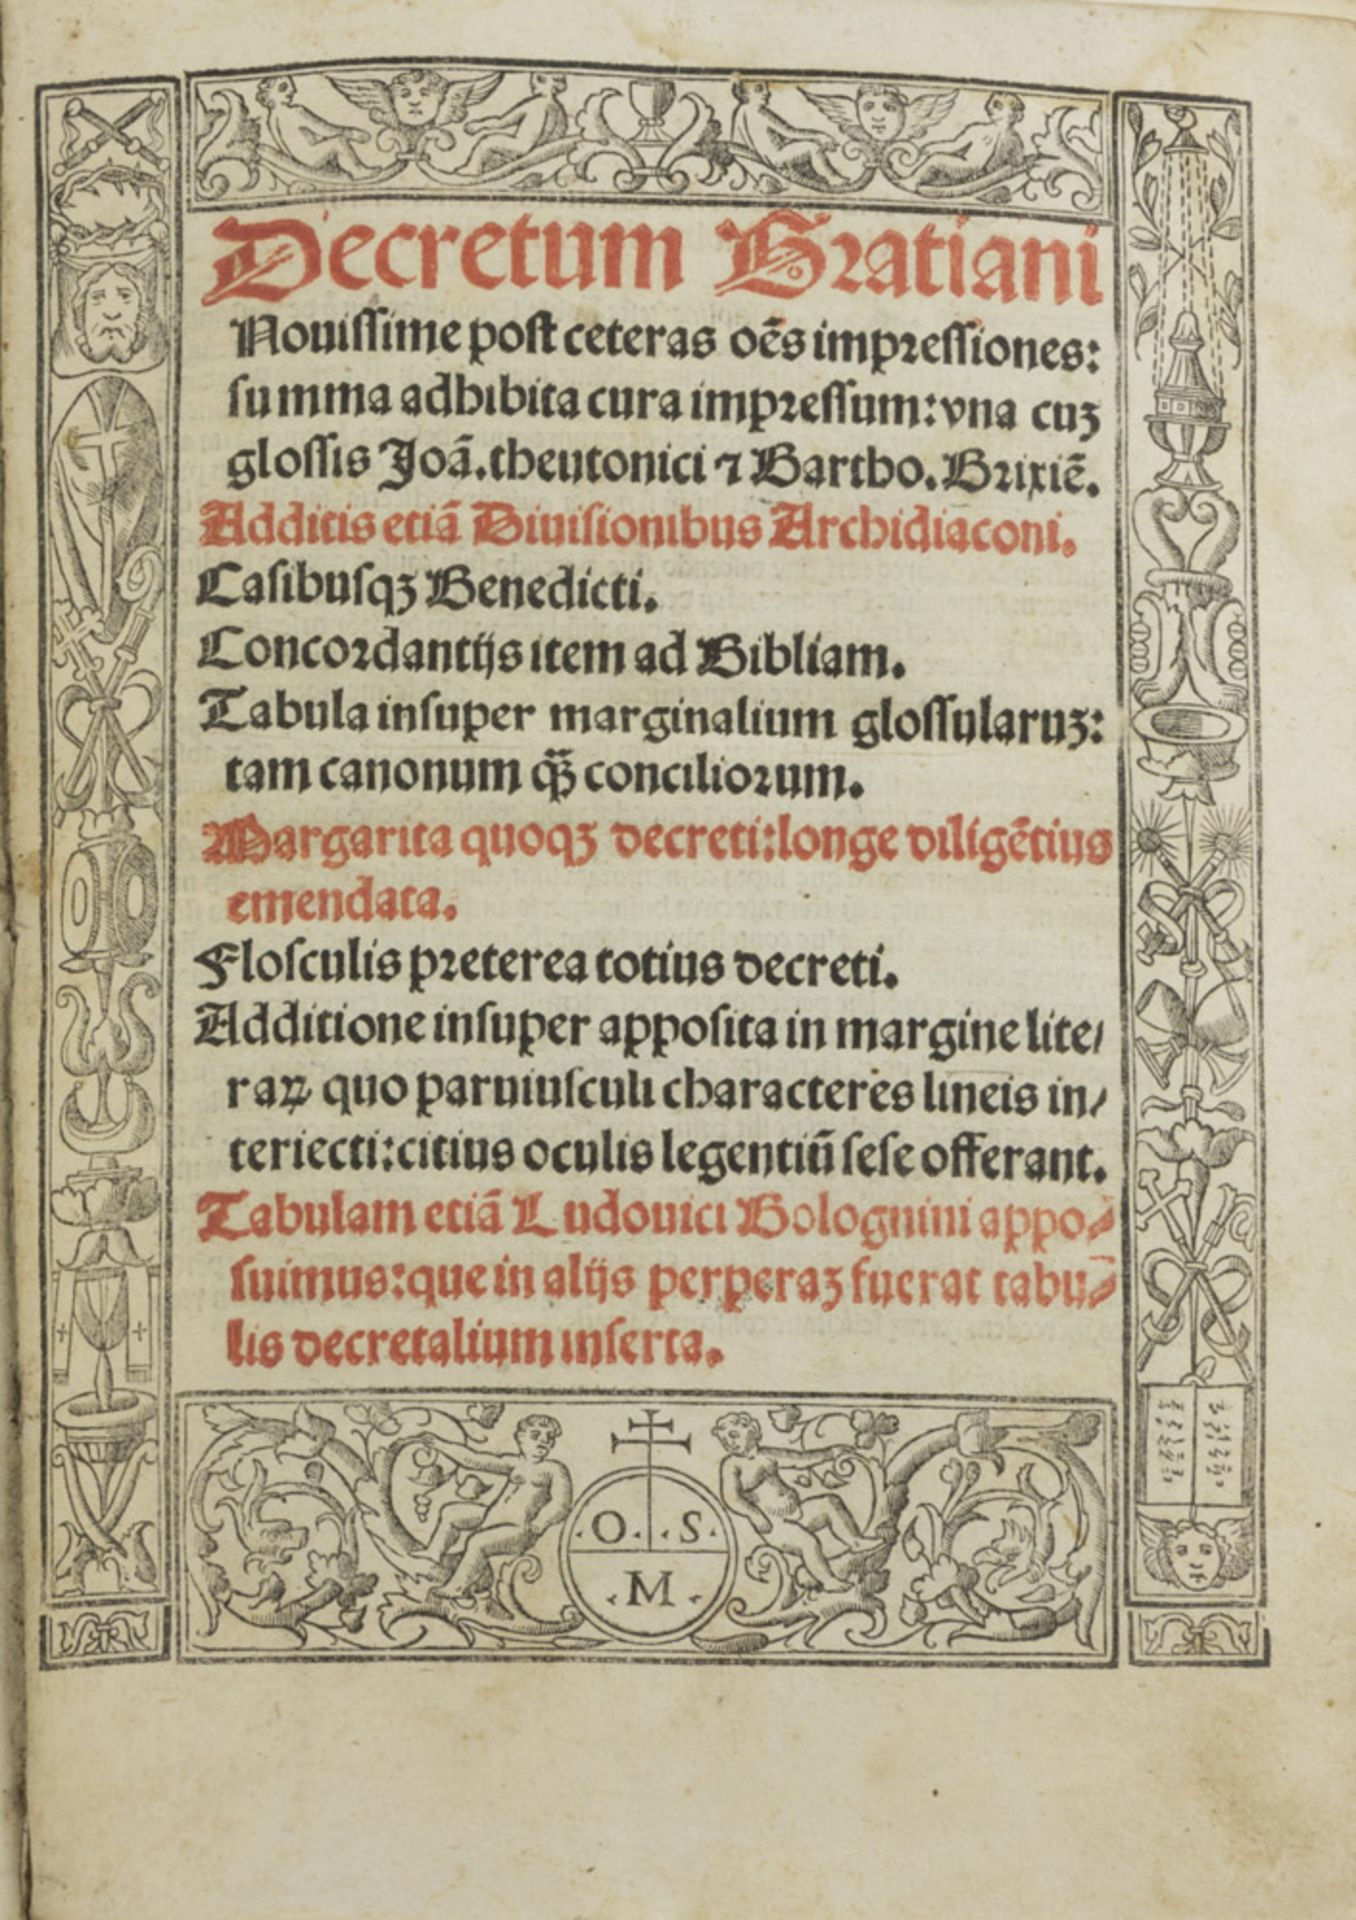 Decretum Gratiani
Nouissime post ceteras oēs impressiones:
summa adhibita cura impressum: vna cuꝫ
glossis Joā. theutonici ⁊ Bartho. Brixiē.
Additis etiā Diuisionibus Archidiaconi.
Casibusqꝫ Benedicti.
Concordantijs item ad Bibliam.
Tabula insuper marginalium glossularuꝫ:
tam canonum qꝫ̄ conciliorum.
Margarita quoqꝫ decreti: longe diligētius
emendata.
Flosculis preterea totius decreti.
Additione insuper apposita in margine lite/
raꝝ quo paruiusculi characteres lineis in/
teriecti: citius oculis legentiū sese offerant.
Tabulam etiā Ludouici Bolognini appo-
suimus: que in alijs perperaꝫ fuerat tabu-
lis decretalium inserta.
·O· ·S·
·M·